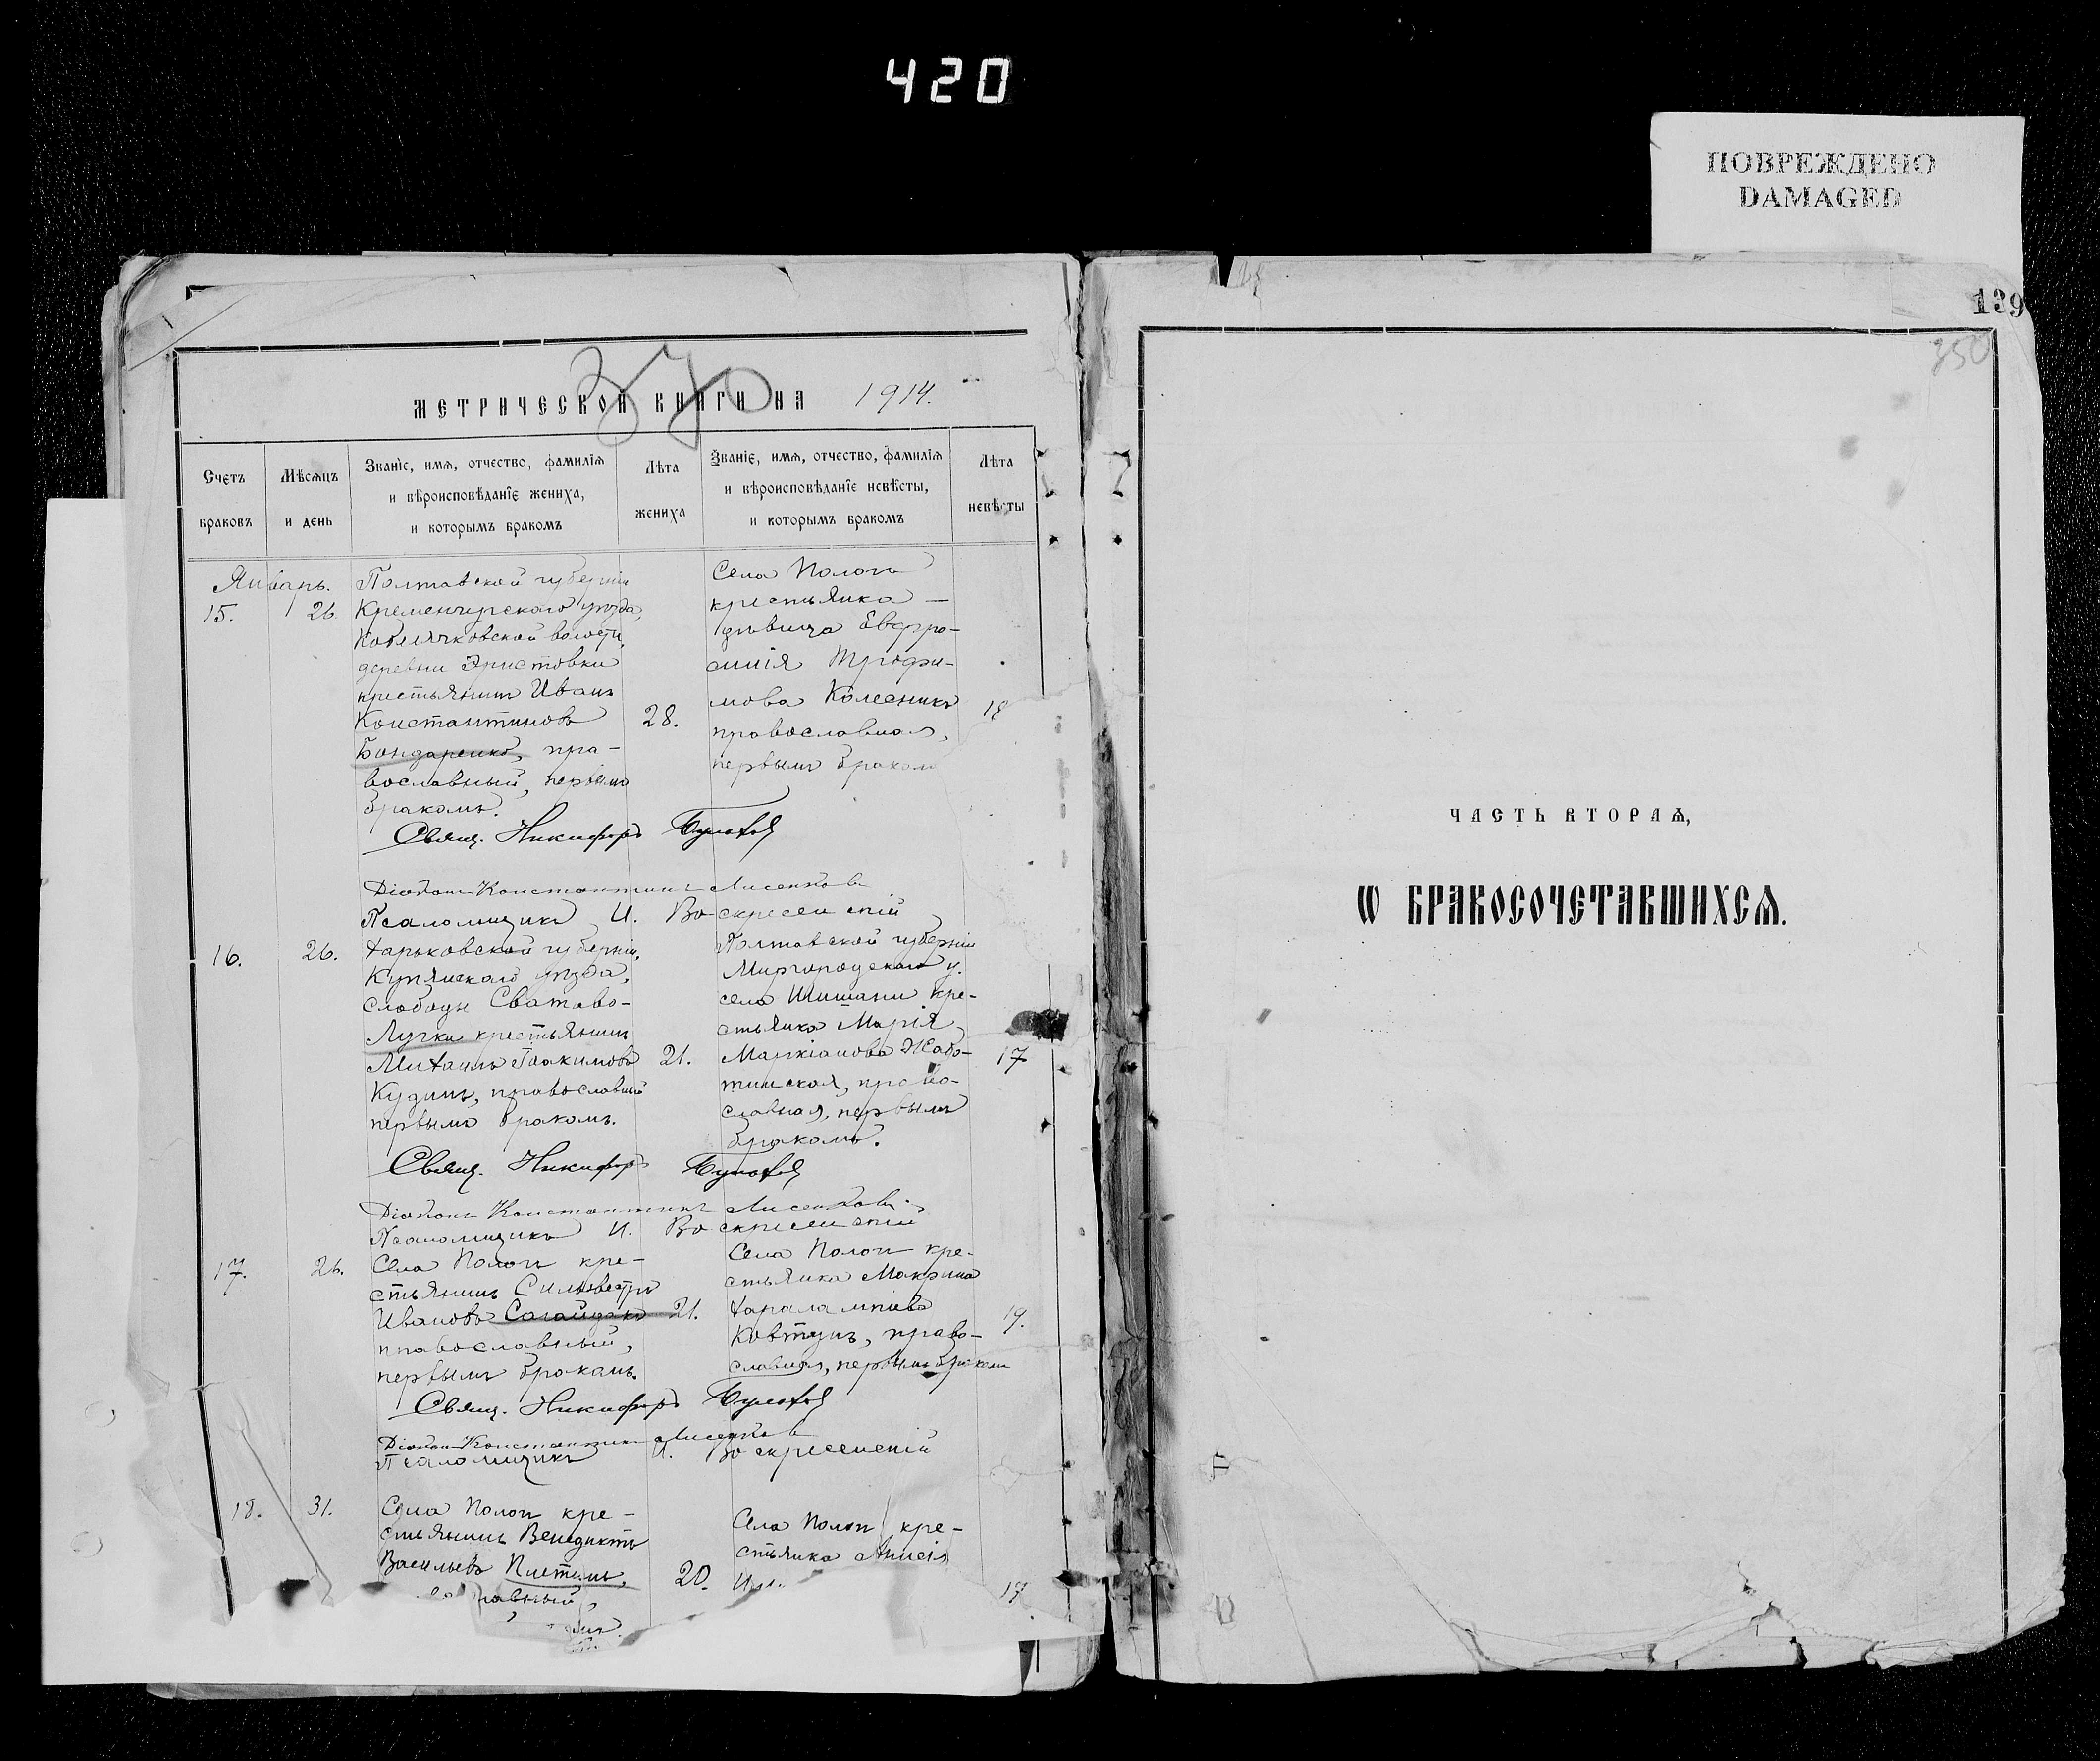 420
ПОВРЕЖДЕНО
DAMAGED
139
350
370
МЕТРИЧЕСКОЙ КНИГИ НА 1914.
Счетъ браковъ
Мѣсѧцъ и день
Званїе, имѧ, отчество, фамилїѧ и вѣроисповѣданїе жениха, и которымъ бракомъ
Лѣта жениха
Званїе, имѧ, отчество, фамилїѧ и вѣроисповѣданїе невѣсты, и которымъ бракомъ
Лѣта невѣсты
Январь.
15.
26.
Полтавской губерніи
Кременчугскаго уѣзда,
волости,
деревни Эристовки
крестьянинъ Иванъ
Константиновъ
Бондаренко, пра-
вославный, первымъ
бракомъ.
28.
Села Попопъ
крестьянка —
дѣвица Евфро-
синія Трофи-
мова Колесникъ
православная,
первымъ бракомъ
18
Свящ. Никифоръ
Діаконъ Константинъ Лисенковъ
Псаломщикъ И. Воскресенскій
16.
26.
Харьковской губерніи,
Купянскаго уѣзда,
слободы Сватово-
Лучки крестьянинъ
Михаилъ Іоакимовъ
Кудинъ, православный
первымъ бракомъ.
21.
Полтавской губерніи
Миргородскаго у.
села Шишаки кре-
стьянка Марія
Маркіанова Жабо-
тинская, право-
славная, первымъ
бракомъ.
17
Свящ. Никифоръ
Діаконъ Константинъ Лисенковъ
Псаломщикъ И. Воскресенскій
17.
26.
Села кре-
стьянинъ Сильвестръ
Ивановъ Сагайдакъ
православный,
первымъ бракомъ.
21.
Села кре-
стьянка Макрина
Харалампіева
Ковтунъ, право-
славная, первымъ бракомъ
19.
Свящ. Никифоръ
Діаконъ Константинъ Лисенковъ
Псаломщикъ И. Воскресенскій
18.
31.
Села кре-
стьянинъ Венедиктъ
Васильевъ
20.
Села кре-
стьянка Анисія
17
ЧАСТЬ ВТОРАѦ,
Ѡ БРАКОСОЧЕТАВШИХСѦ.